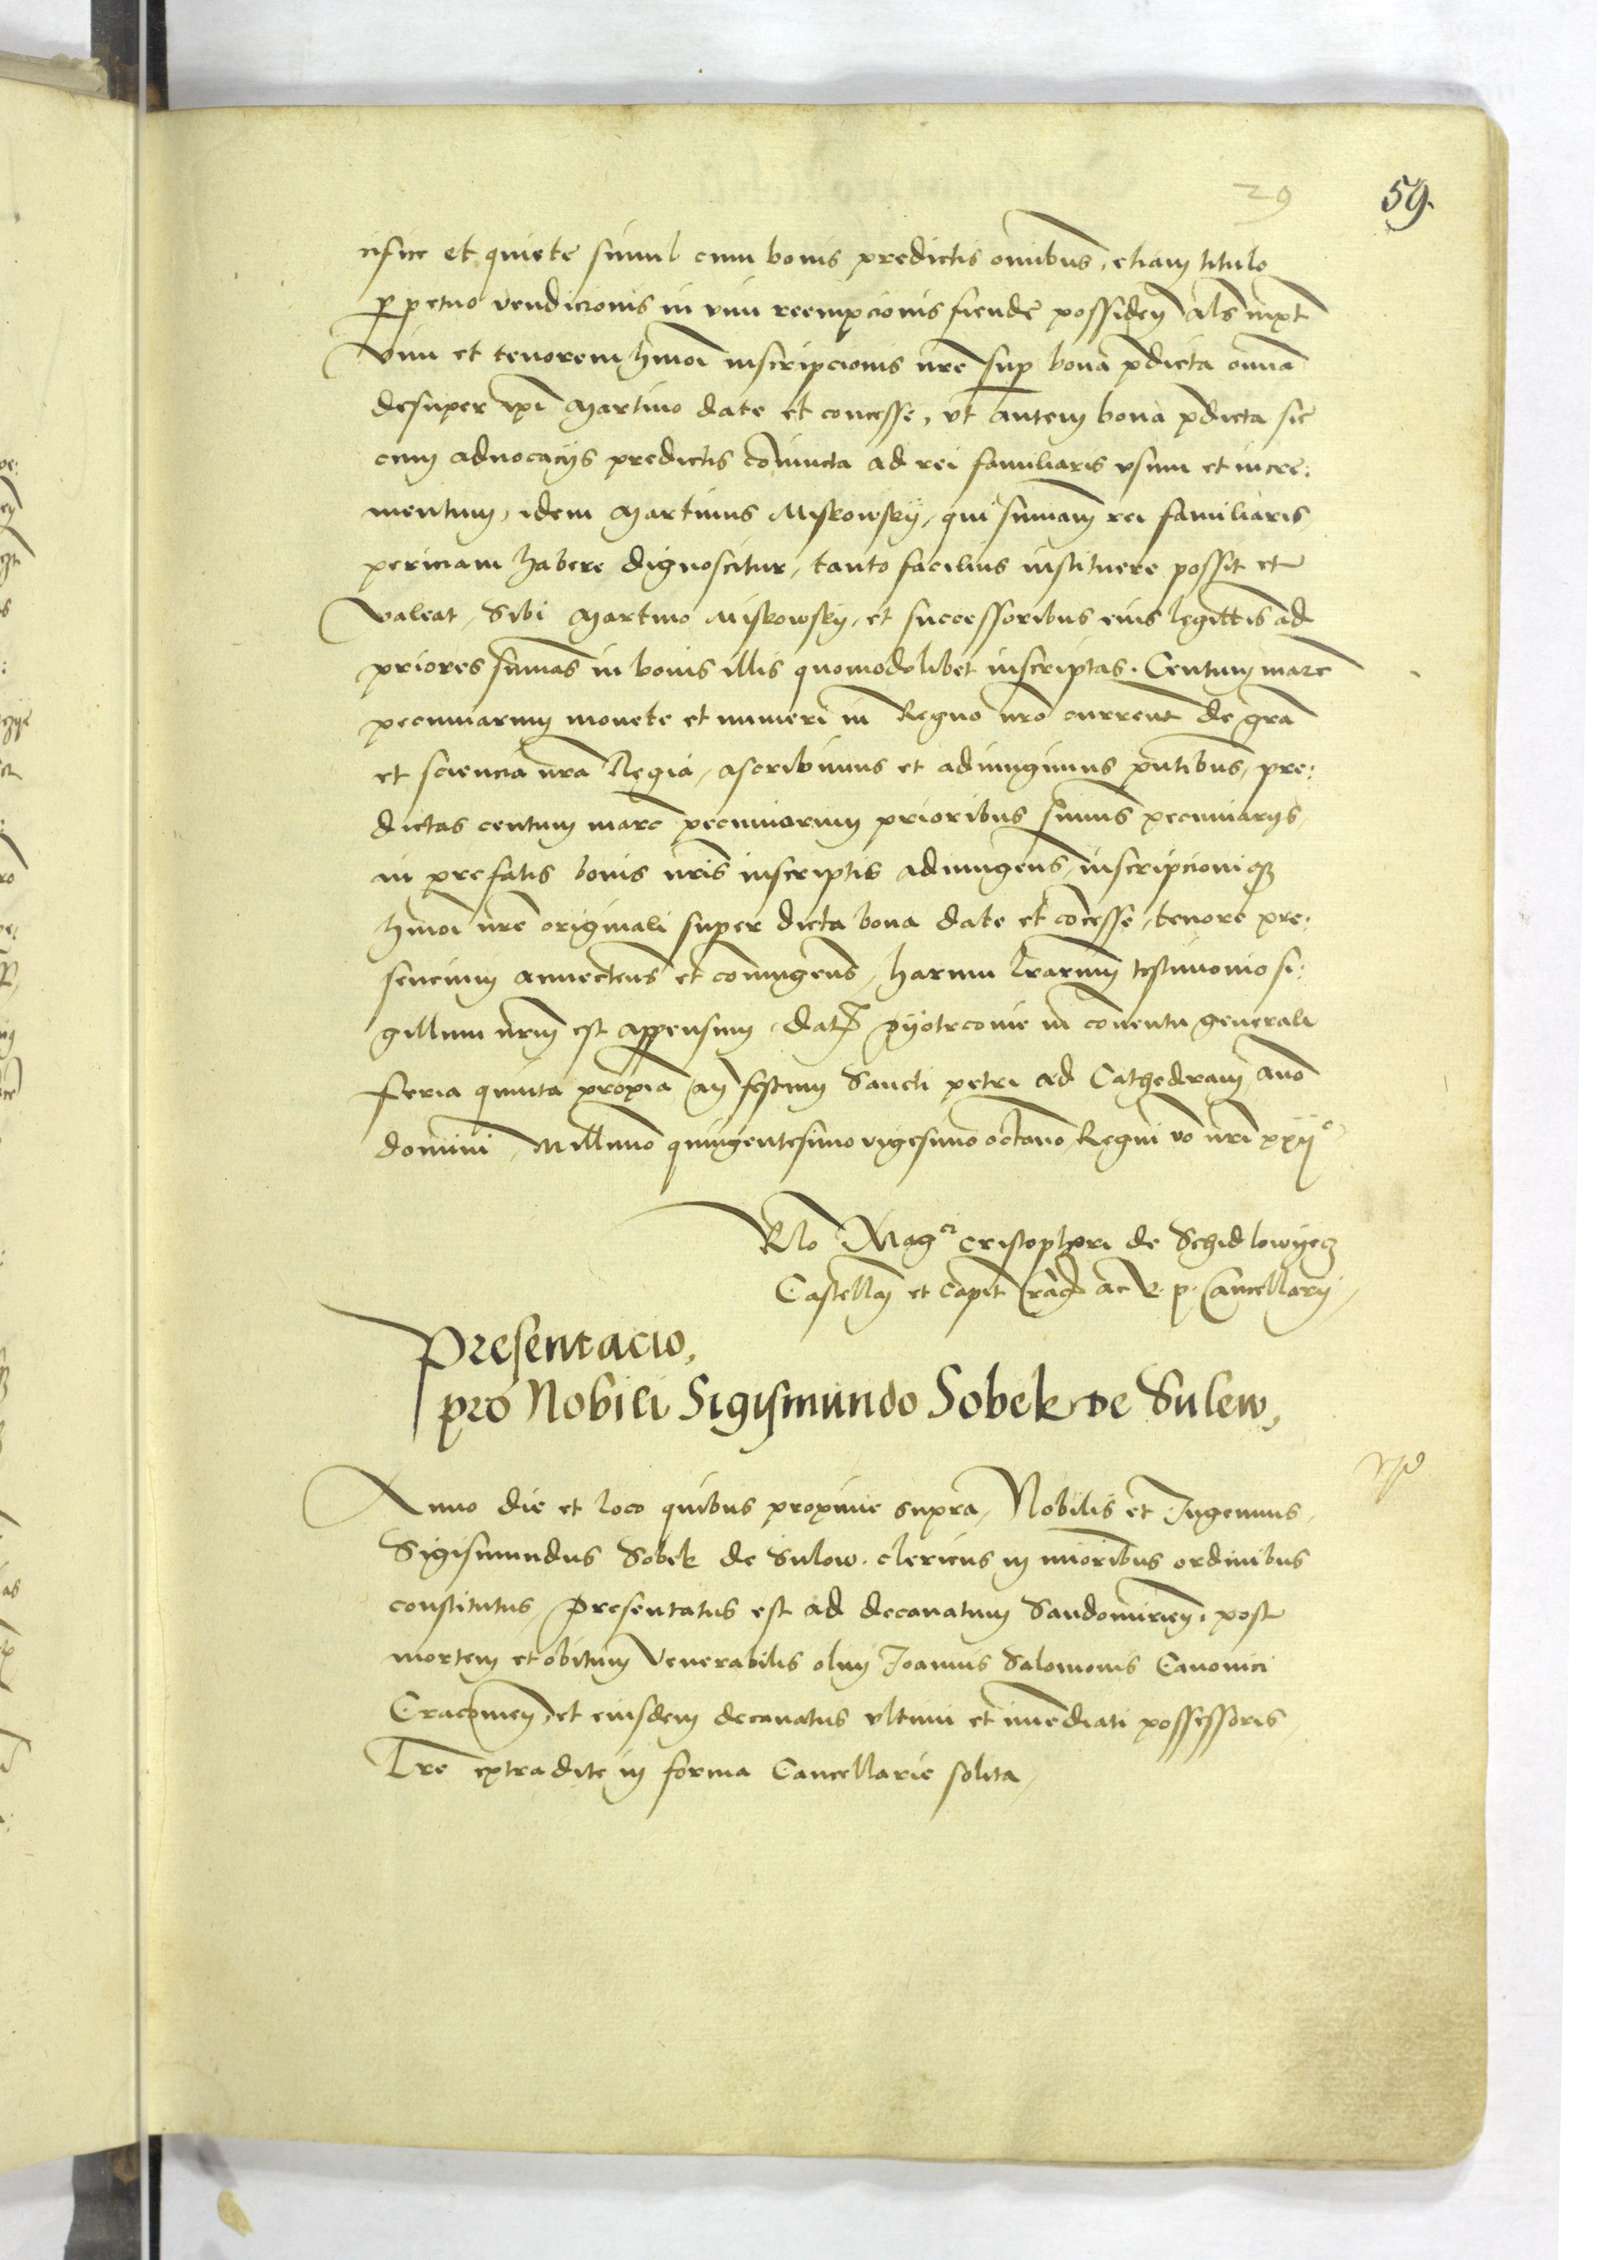 29
59.
cifice et quiete simul cum bonis predictis omibus, etiam titulo
perpetuo vendicionis in vim reempcionis fiende possiden als iuxt
vim et tenorem hmoi inscripcionis nre sup bona pdicta omia
desuper ipi Martino date et concesse, vt autem bona pdicta sic
cum aduocacijs predictis coniuncta ad rei familiaris vsum et incre:
mentum, idem Martinus Miskowsky, qui sumam rei familiaris
periciam habere dignoscitur, tanto facilius instituere possit et
valeat, Sibi Martino Miskowsky, et successoribus eius legittis ad
priores sumas in bonis illis quomodolibet inscriptas. Centum marc
pecuniarum monete et numeri in Regno nro current de gra
et sciencia nra Regia, ascribimus et adiungimus pntibus, pre:
dictas centum marc pecuniarum prioribus sumis pecuniarys,
in prefatis bonis nris inscriptis adiungens, inscripcionique
hmoi nre originali super dicta bona date et concesse, tenore pre:
sencium annectens et coniungens, harum lrarum testimonio si:
gillum nrum est appensum, dat Pyotrcouie in conuentu generali
feria quinta proxia an festum Sancti petri ad Cathedram, Ano
domini, Millimo quingentesimo vigesimo octauo, Regni vo nri xxij°
Rlo Magci Cristophori de Schidlowyecz
Castellan et Capit Crac ac R. p. Cancellary,
Presentacio,
pro Nobili Sigismundo Sobek de Sulew,
Anno die et loco quibus proxime supra, Nobilis et Ingenuus,
Sigismundus Sobek de Sulow. clericus in mioribus ordinibus
constitutus, Presentatus est ad decanatum Sandomirien, post
mortem et obitum Venerabilis olim Joannis Salomonis Canonici
Cracouien, et eiusdem decanatus vltimi et imediati possessoris,
Lre extradite in forma Cancellarie solita,